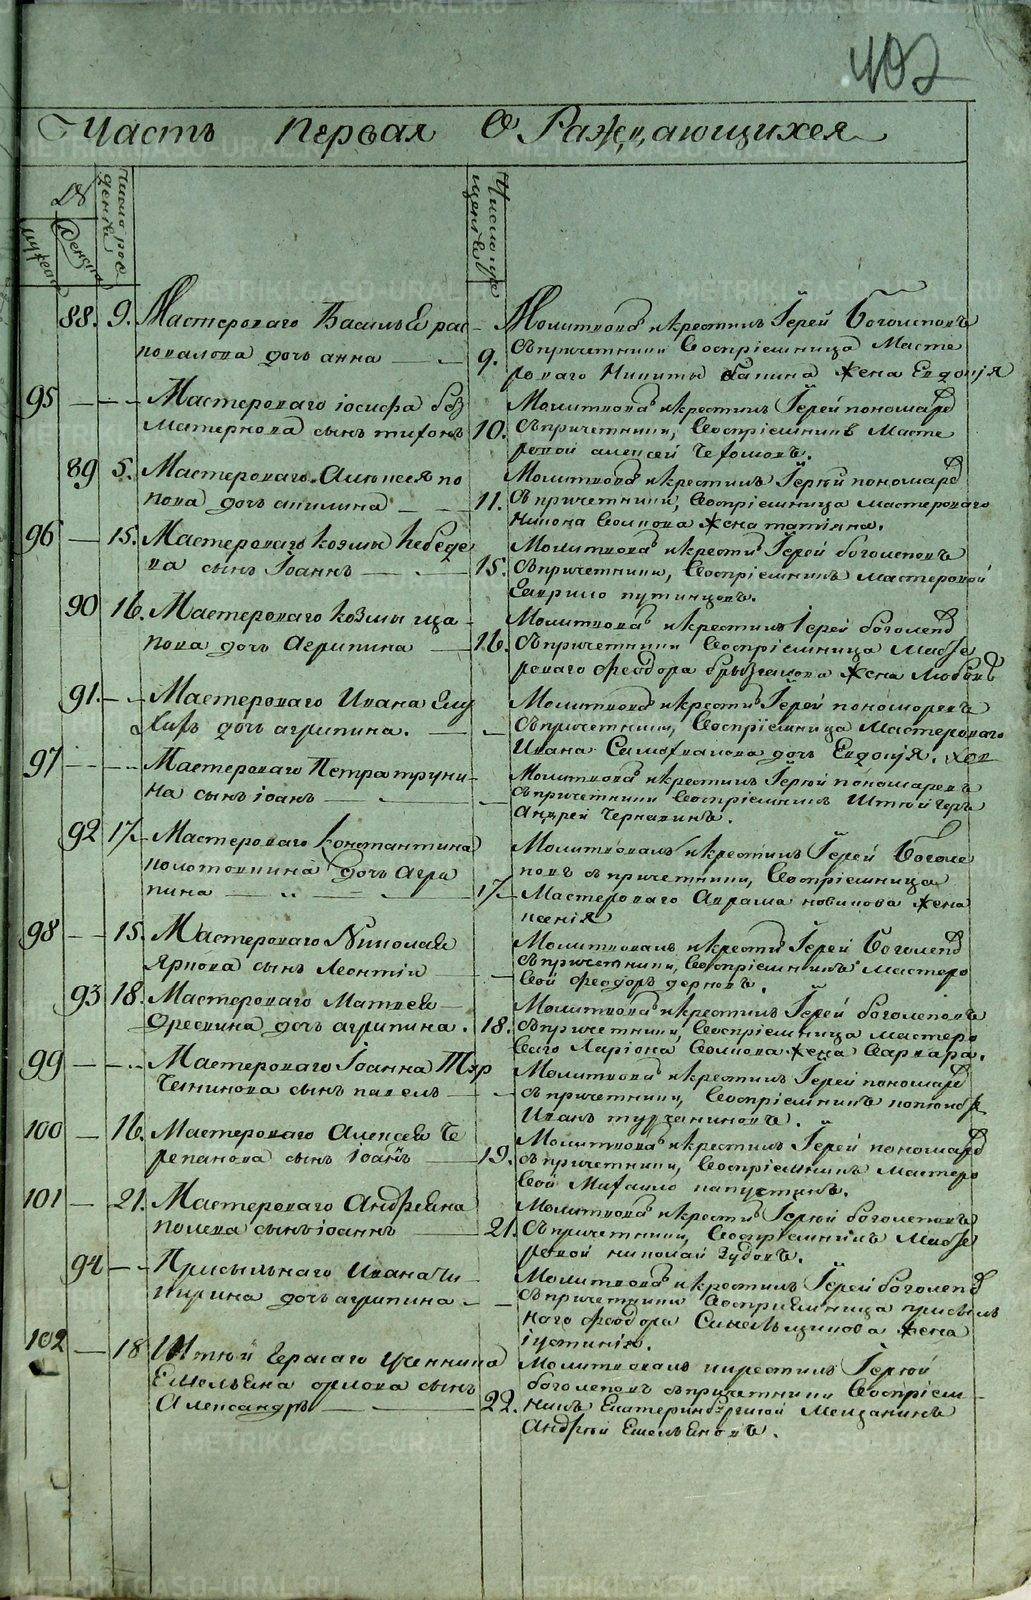 402
Часть первая О Раждающихся
№
Число рождения
мужеска
женска
Число крещения
88. 9. Мастероваго Василья
повалова дочь анна
9.
Молитвовал и крестил Іерей Боголепов
с причетники Восприемница Масте
роваго Никиты бапина жена Евдокія
95 Мастероваго іосифа без
матернова сын тихон
10.
Молитвовал и крестил Іерей пономарев
с причетники, Восприемник Масте
ровой алексей
89 5. Мастероваго Алексея по
пова дочь акилина
11.
Молитвовал и крестил Іерей пономарев
с причетники, Восприемница мастероваго
жена татияна.
96 15. Мастероваго козмы Лебеде
ва сын Іоанн
15.
Молитвовал и крестил Іерей боголепов
с причетники, Восприемник мастеровой
Гаврило путинцов.
90 16. Мастероваго козмы ща
пова дочь Агрипина
16.
Молитвовал и крестил Іерей боголепов
с причетники Восприемница Масте
роваго феодора брызгалова жена Любовь
91. Мастероваго Ивана
дочь агрипина.
Молитвовал и крестил Іерей пономарев
с причетники, Восприемница Мастероваго
Ивана Самохвалова дочь Евдокія.
97 Мастероваго Петра труни
на сын іоан
Молитвовал и крестил Іерей пономарев
с причетники Восприемник Штейгер
Андрей Чернавин.
92 17 Мастероваго Константина
полотовнина дочь Агри
пина
17
Молитвовал и крестил Іерей Боголе
пов с причетники, Восприемница
Мастероваго Аврама новикова жена
ксенія
98 15. Мастероваго Николая
Яркова сын Леонтій
Молитвовал и крестил Іерей Боголепов
с причетники, Восприемник мастеро
вой феодор дернов.
93 18. Мастероваго Матвея
дочь агрипина.
18.
Молитвовал и крестил Іерей боголепов
с причетники, Восприемница мастеро
ваго Ларіона Волкова жена Варвара.
99 Мастероваго Іоанна
сын павел
Молитвовал и крестил Іерей пономарев
с причетники, Восприемник
Иван турчанинов.
100 16. Мастероваго Алексея Че
репанова сын іоанн
19.
Молитвовал и крестил Іерей пономарев
с причетники, Восприемник мастеро
вой Михайло капустин.
101 21. Мастероваго Андреяна
полева сын іоанн
21.
Молитвовал и крестил Іерей боголепов
с причетники, Восприемник Масте
ровой николай Зудов.
94 Присыльнаго Ивана Чи
гирина дочь агрипина
Молитвовал и крестил Іерей боголепов
с причетники Восприемница присыль
наго феодора жена
іустинія.
102 18 Штейгерскаго ученика
Емельяна орлова сын
Александр
22.
Молитвовал и крестил Іерей
боголепов с причетники Восприем
ник Екатеринбургской Мещанин
Андрей Емельянов.